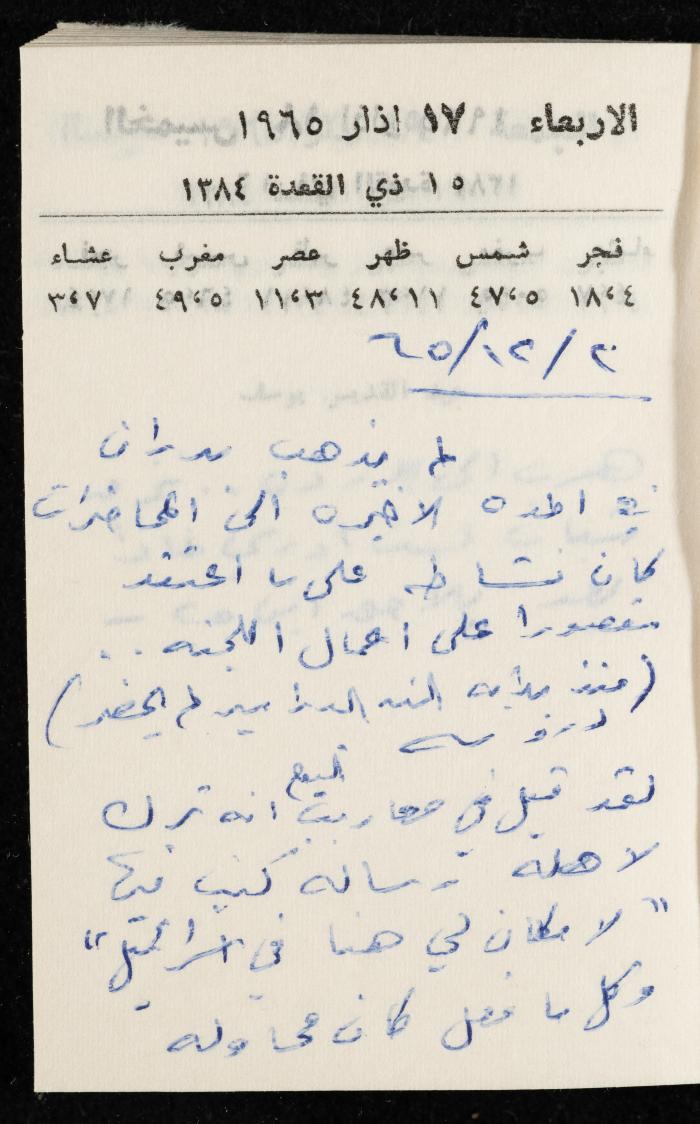 الاربعاء ١٧ اذار ١٩٦٥
١٥ ذي القعدة ١٣٨٤
فجر شمس ظهر عصر مغرب عشاء
٤،١٨ ٥،٤٧ ١١،٤٨ ٣،١١ ٥،٤٩ ٧،٣
٢ / ١٢ / ٦٥
لم يذهب بدران
في المده الاخيره الى المحاضرات
كان نشاطه على ما اعتقد
مقصورا على اعمال اللجنه ..
(منذ بدايه السنه الدراسيه لم يحضر)
لقد قيل في معاريف اليوم انه ترك
لاهله رساله كتب فيها
" لا مكان لي هنا في اسرائيل "
وكل ما فعل كان محاوله